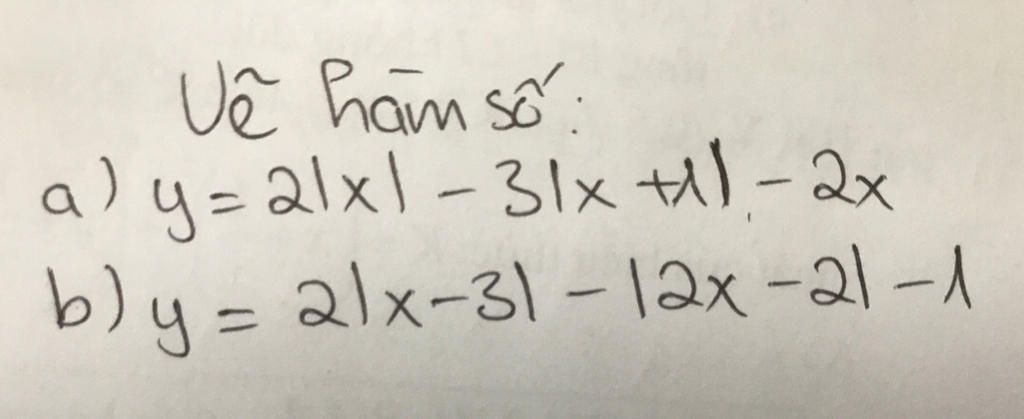 Vẽ hàm số:
a) y = 2|x| - 3|x + 1| - 2x
b) y = 2|x - 3| - |2x - 2| - 1